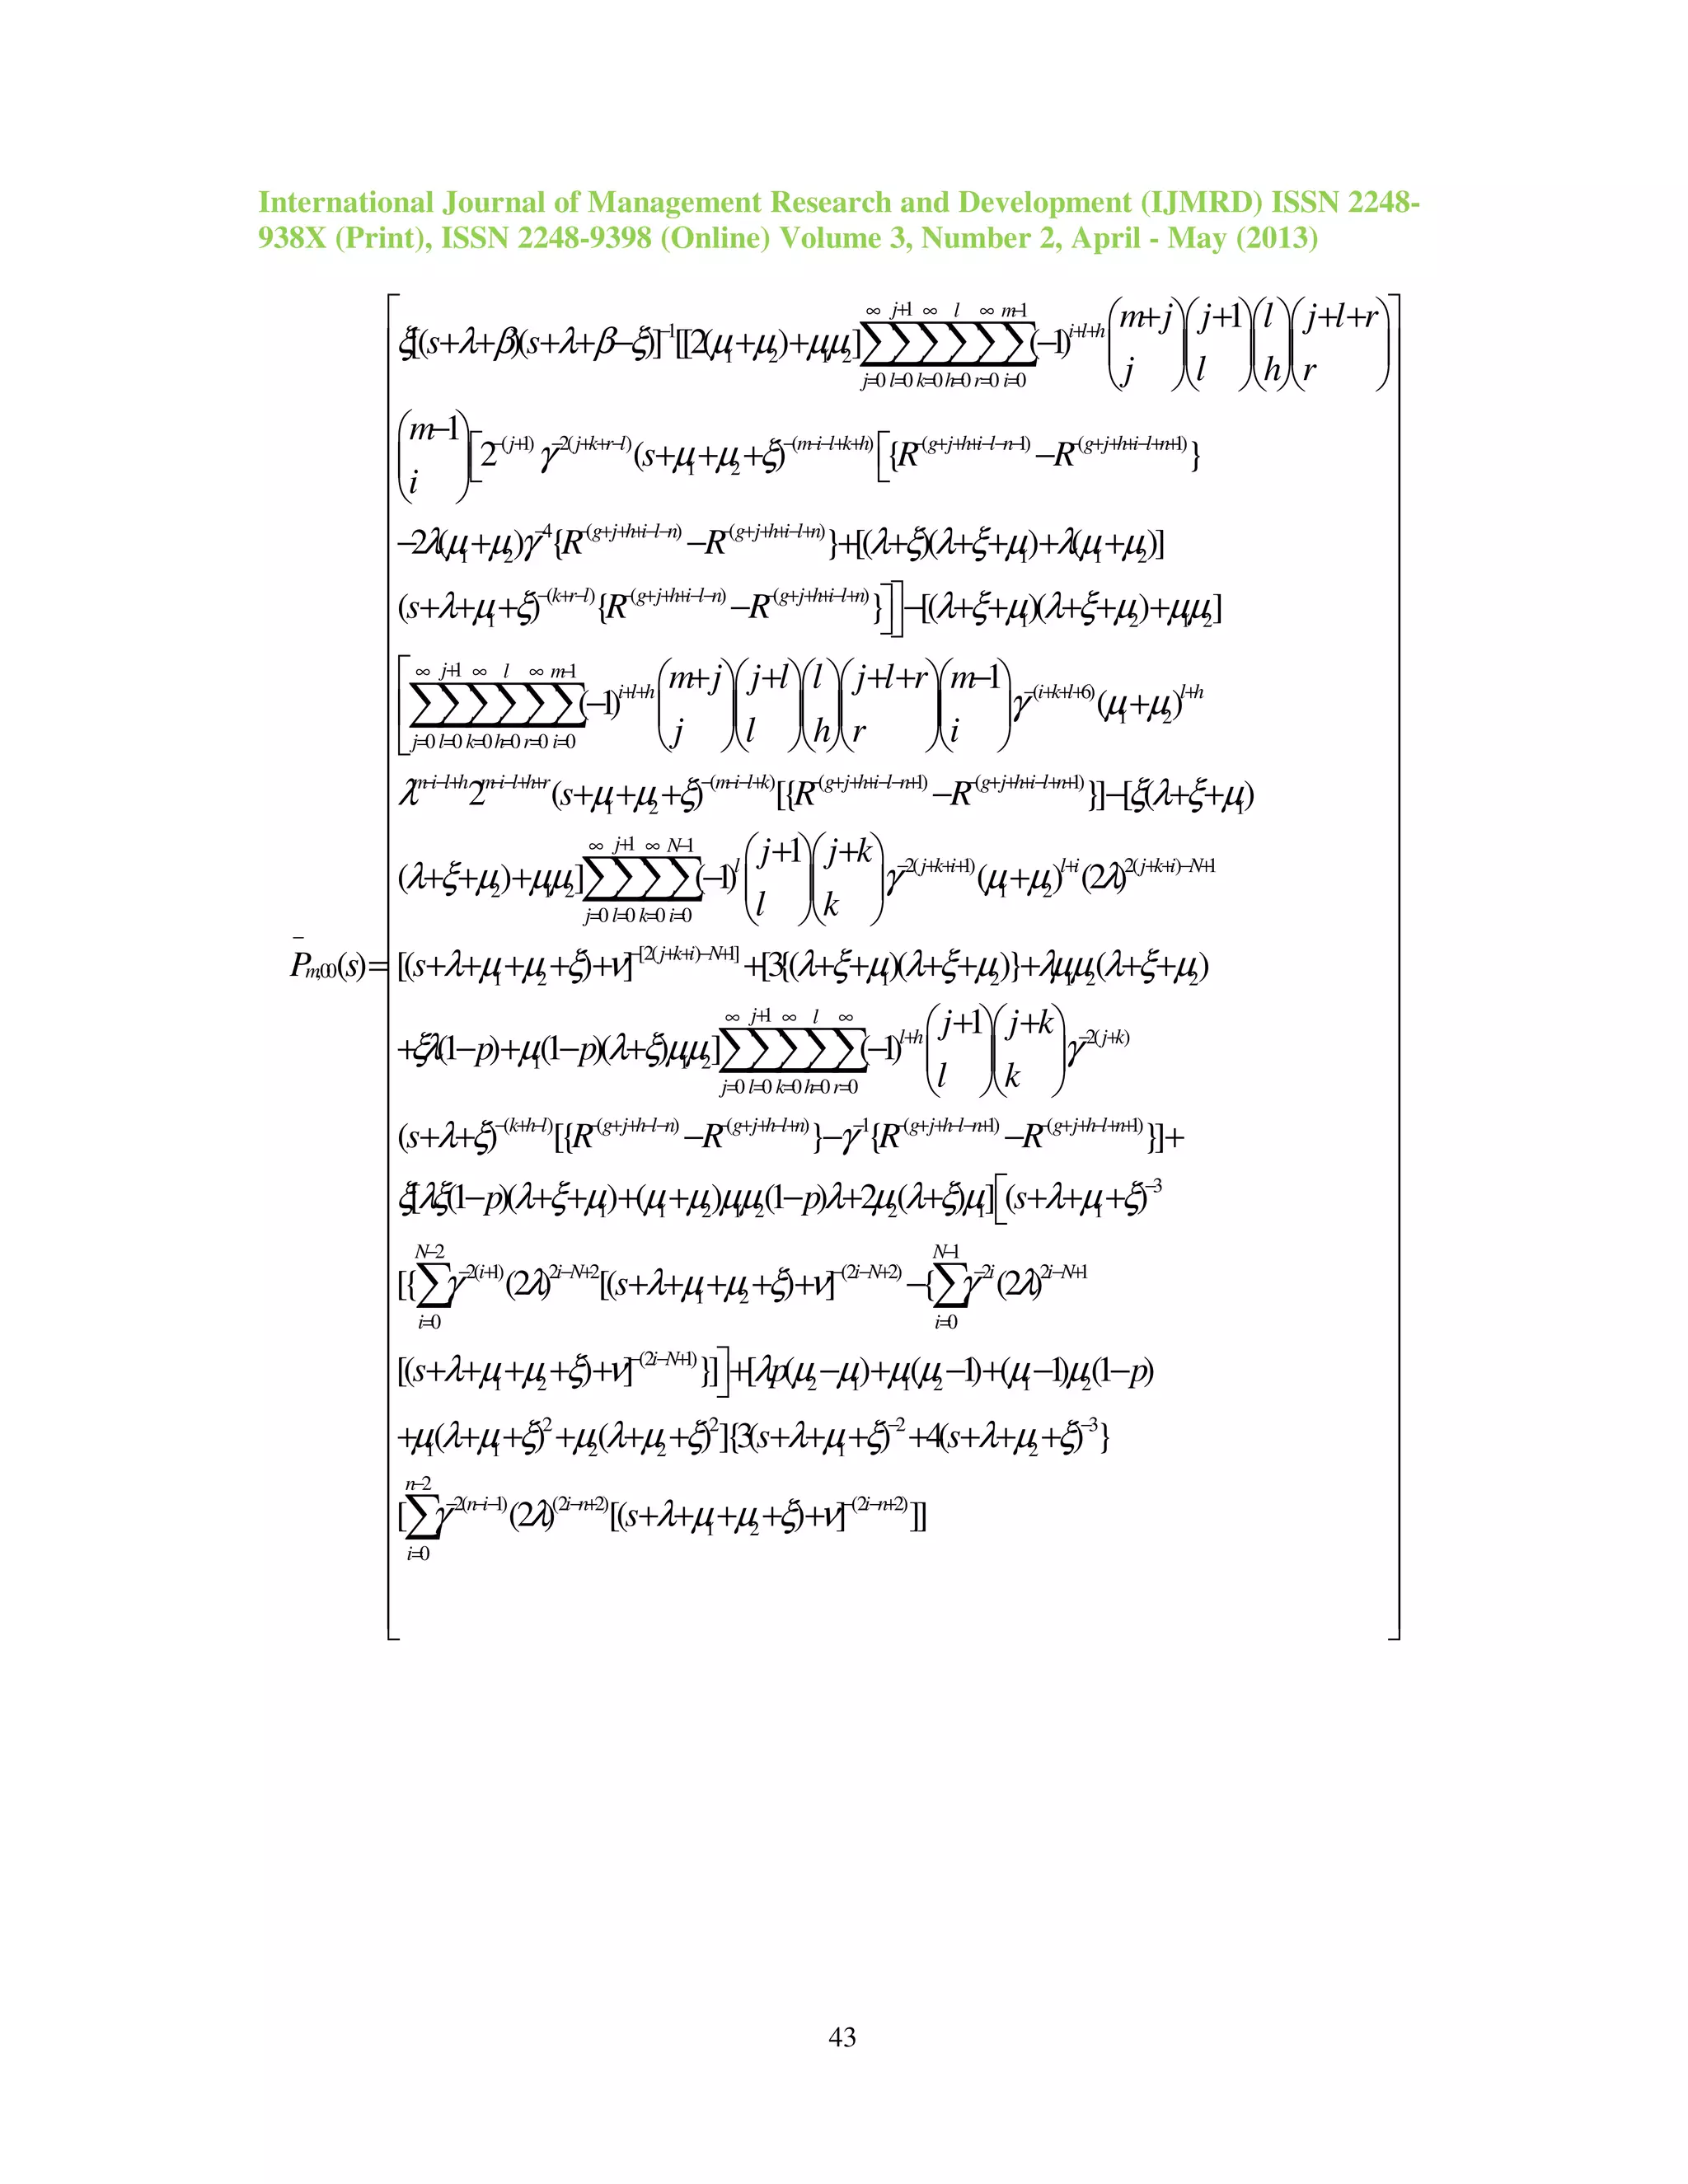 International Journal of Management Research and Development (IJMRD) ISSN 2248-
938X (Print), ISSN 2248-9398 (Online) Volume 3, Number 2, April - May (2013)
ξ[(s+λ+β)(s+λ+β−ξ)]^{−1}[[[2(μ_1+μ_2)+μ_1μ_2] ∑_{j=0}^{∞} ∑_{l=0}^{j+1} ∑_{k=0}^{∞} ∑_{h=0}^{l} ∑_{r=0}^{∞} ∑_{i=0}^{m−1} (−1)^{i+l+h} (m+j j) (j+1 l) (l h) (j+l+r r)
(m−1 i) [2^{−(j+1)} γ^{−2(j+k+r−l)} (s+μ_1+μ_2+ξ)^{−(m−i−l+k+h)} [{R^{−(g+j+h+i−l−n−1)} −R^{−(g+j+h+i−l+n+1)}}
−2λ(μ_1+μ_2)γ^{−4}{R^{−(g+j+h+i−l−n)} −R^{−(g+j+h+i−l+n)}}+[(λ+ξ)(λ+ξ+μ_1)+λ(μ_1+μ_2)]
(s+λ+μ_1+ξ)^{−(k+r−l)} {R^{−(g+j+h+i−l−n)} −R^{−(g+j+h+i−l+n)}}]]−[(λ+ξ+μ_1)(λ+ξ+μ_2)+μ_1μ_2]
[∑_{j=0}^{∞} ∑_{l=0}^{j+1} ∑_{k=0}^{∞} ∑_{h=0}^{l} ∑_{r=0}^{∞} ∑_{i=0}^{m−1} (−1)^{i+l+h} (m+j j) (j+l l) (l h) (j+l+r r) (m−1 i) γ^{−(i+k+l+6)} (μ_1+μ_2)^{l+h}
λ^{m−i−l+h} 2^{m−i−l+h+r} (s+μ_1+μ_2+ξ)^{−(m−i−l+k)} [{R^{−(g+j+h+i−l−n+1)} −R^{−(g+j+h+i−l+n+1)}}]−[ξ(λ+ξ+μ_1)
(λ+ξ+μ_2)+μ_1μ_2] ∑_{j=0}^{∞} ∑_{l=0}^{j+1} ∑_{k=0}^{∞} ∑_{i=0}^{N−1} (−1)^{l} (j+1 l) (j+k k) γ^{−2(j+k+i+1)} (μ_1+μ_2)^{l+i} (2λ)^{2(j+k+i)−N+1}
P̄_{m,0,0}(s)= [(s+λ+μ_1+μ_2+ξ)+ν]^{−[2(j+k+i)−N+1]} +[3{(λ+ξ+μ_1)(λ+ξ+μ_2)}+λμ_1μ_2(λ+ξ+μ_2)
+ξλ(1−p)+μ_1(1−p)(λ+ξ)μ_1μ_2] ∑_{j=0}^{∞} ∑_{l=0}^{j+1} ∑_{k=0}^{∞} ∑_{h=0}^{l} ∑_{r=0}^{∞} (−1)^{l+h} (j+1 l) (j+k k) γ^{−2(j+k)}
(s+λ+ξ)^{−(k+h−l)} [{R^{−(g+j+h−l−n)} −R^{−(g+j+h−l+n)}}−γ^{−1}{R^{−(g+j+h−l−n+1)} −R^{−(g+j+h−l+n+1)}}]+
ξ[λξ(1−p)(λ+ξ+μ_1)+(μ_1+μ_2)μ_1μ_2(1−p)λ+2μ_2(λ+ξ)μ_1][(s+λ+μ_1+ξ)^{−3}
[{∑_{i=0}^{N−2} γ^{−2(i+1)} (2λ)^{2i−N+2} [(s+λ+μ_1+μ_2+ξ)+ν]^{−(2i−N+2)} −{∑_{i=0}^{N−1} γ^{−2i} (2λ)^{2i−N+1}
[(s+λ+μ_1+μ_2+ξ)+ν]^{−(2i−N+1)} }]]+[λp(μ_2−μ_1)+μ_1(μ_2−1)+(μ_1−1)μ_2(1−p)
+μ_1(λ+μ_1+ξ)^2+μ_2(λ+μ_2+ξ)^2]{3(s+λ+μ_1+ξ)^{−2}+4(s+λ+μ_2+ξ)^{−3}}
[∑_{i=0}^{n−2} γ^{−2(n−i−1)} (2λ)^{(2i−n+2)} [(s+λ+μ_1+μ_2+ξ)+ν]^{−(2i−n+2)} ]]
43